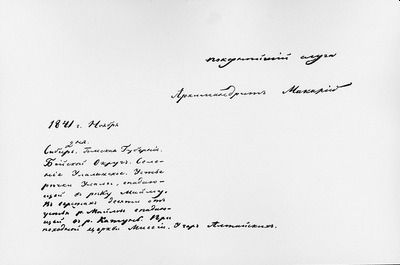 покорнѣйшій слуга
Архимандритъ Макарій
1841 г. Ноября
дня.
Сибирь. Томская Губернія.
Бійской Округъ. Селе-
ніе Улалинское. Устье
рѣчки Улалы, впадаю-
щей въ рѣку Майму.
Въ верстахъ десяти отъ
устья р. Маймы впадаю-
щей въ р. Катунь. При
походной церкви Миссіи. Угоръ Алтайскихъ.